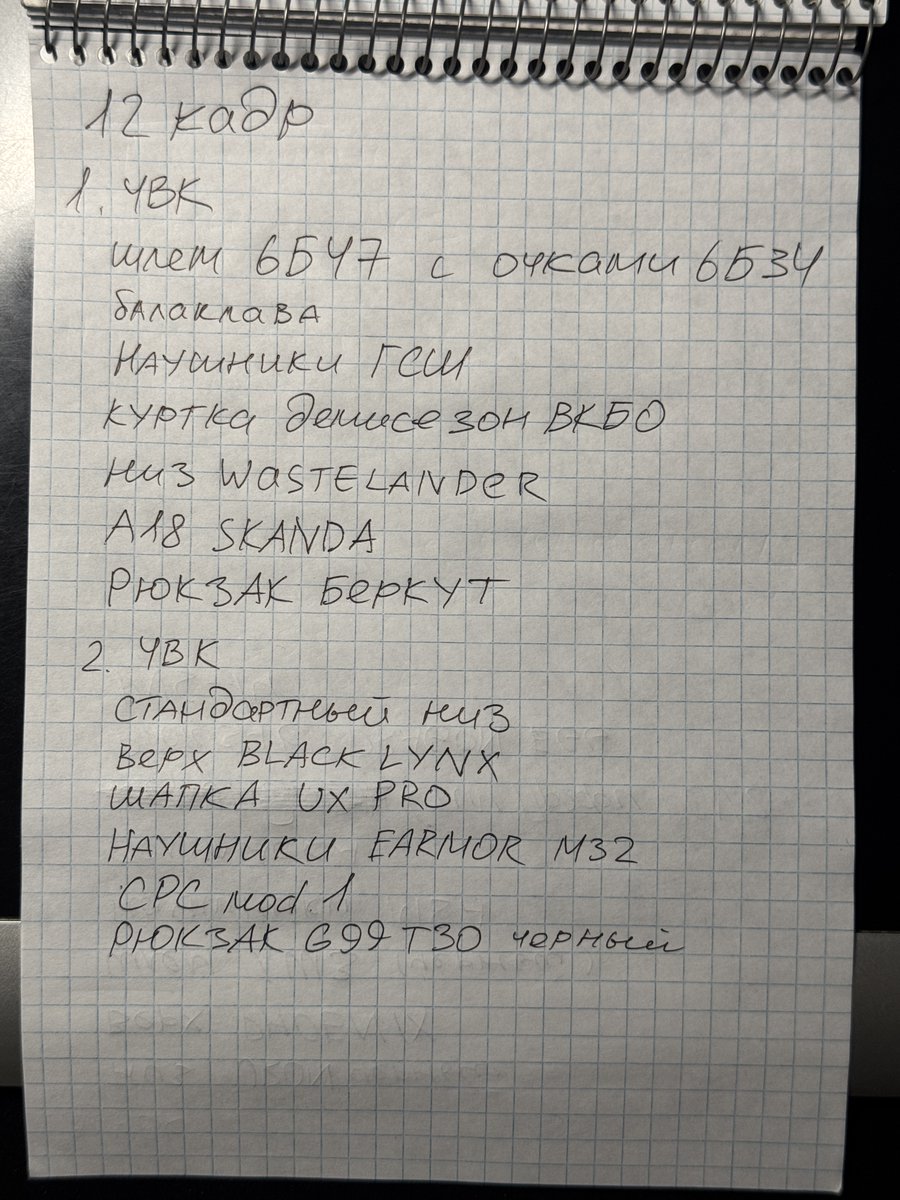 12 кадр
1. ЧВК
шлем 6Б47 с очками 6Б34
балаклава
Наушники ГСШ
куртка демисезон ВКБО
низ WASTELANDER
А18 SKANDA
Рюкзак Беркут
2. ЧВК
стандартный низ
верх BLACK LYNX
шапка UX PRO
Наушники EARMOR M32
CPC mod.1
Рюкзак G99 T30 черный